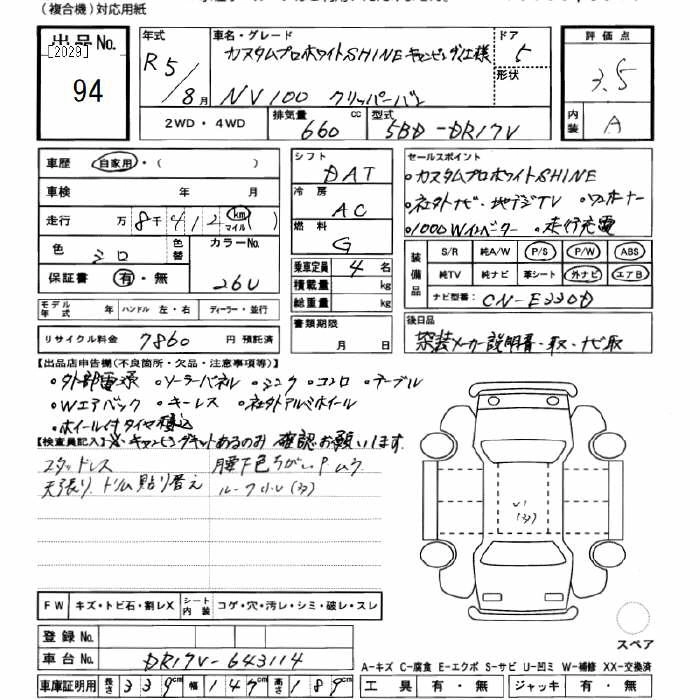 (複合機)対応用紙
出品No.
[2029]
94
年式
R5/8月
車名・グレード
カスタムプロホワイトSHINE キャンピング仕様
NV100 クリッパーバン
ドア
5
形状
評価点
3.5
内装
A
2WD・4WD
排気量
660
cc
型式
5BD-DR17V
車歴
自家用・( )
車検
年 月
走行
万 8千 4 1 2 km マイル ( )
色
シロ
色替
カラーNo.
26U
保証書
有・無
モデル年式
年
ハンドル 左・右
ディーラー・並行
リサイクル料金
7860
円 預託済
シフト
DAT
冷房
AC
燃料
G
乗車定員
4名
積載量
kg
総重量
kg
書類期限
月 日
セールスポイント
・カスタムプロホワイトSHINE
・社外ナビ・地デジTV ・ワンオーナー
・1000Wインバーター ・走行充電
装備品
S/R 純A/W P/S P/W ABS
純TV 純ナビ 革シート 外ナビ エアB
ナビ型番: CN-E330D
後日品
架装メーカー説明書・取、ナビ取
【出品店申告欄(不良箇所・欠品・注意事項等)】
・外部電源 ・ソーラーパネル ・シンク ・コンロ ・テーブル
・Wエアバック ・キーレス ・社外アルミホイール
・ホイール付タイヤ積込
【検査員記入】
※キャンピングキットあるのみ 確認お願いします
スタッドレス
腰下色ちがい.Pムラ
天張り、トリム貼り替え
ルーフ小U(ヨ)
U1
(ヨ)
FW
キズ・トビ石・割レX
シート内装
コゲ・穴・汚レ・シミ・破レ・スレ
登録No.
車台No.
DR17V-643114
スペア
A-キズ C-腐食 E-エクボ S-サビ U-凹ミ W-補修 XX-交換済
車庫証明用 長さ 339cm 幅 147cm 高さ 189cm
工具 有・無
ジャッキ 有・無